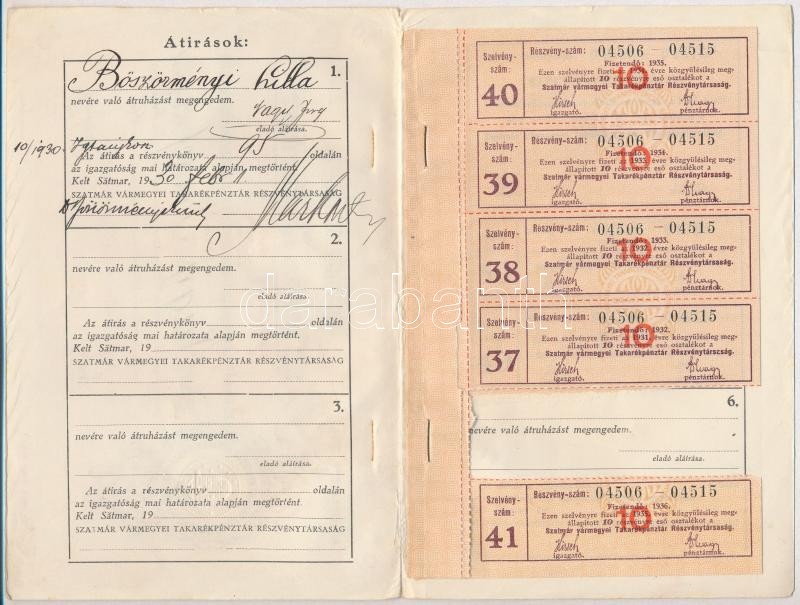 Átirások:
1.
Böszörményi Lilla
nevére való átruházást megengedem.
eladó aláirása.
10/1930.
Az átirás a részvénykönyv 95 oldalán
az igazgatóság mai határozata alapján megtörtént.
Kelt Sătmar, 1930 febr
SZATMÁR VÁRMEGYEI TAKARÉKPÉNZTÁR RÉSZVÉNYTÁRSASÁG
2.
nevére való átruházást megengedem.
eladó aláirása.
Az átirás a részvénykönyv oldalán
az igazgatóság mai határozata alapján megtörtént.
Kelt Sătmar, 19
SZATMÁR VÁRMEGYEI TAKARÉKPÉNZTÁR RÉSZVÉNYTÁRSASÁG
3.
nevére való átruházást megengedem.
eladó aláirása.
Az átirás a részvénykönyv oldalán
az igazgatóság mai határozata alapján megtörtént.
Kelt Sătmar, 19
SZATMÁR VÁRMEGYEI TAKARÉKPÉNZTÁR RÉSZVÉNYTÁRSASÁG
Szelvény-szám:
40
Részvény-szám: 04506 - 04515
Fizetendő: 1935.
Ezen szelvényre fizeti évre közgyülésileg meg-
állapitott 10 részvényre eső osztalékot a
Szatmár vármegyei Takarékpénztár Részvénytársaság.
10
Hirsch
igazgató.
pénztárnok.
Szelvény-szám:
39
Részvény-szám: 04506 - 04515
Fizetendő: 1934.
Ezen szelvényre fizeti 1933. évre közgyülésileg meg-
állapitott 10 részvényre eső osztalékot a
Szatmár vármegyei Takarékpénztár Részvénytársaság.
10
Hirsch
igazgató.
pénztárnok.
Szelvény-szám:
38
Részvény-szám: 04506 - 04515
Fizetendő: 1933.
Ezen szelvényre fizeti 1932. évre közgyülésileg meg-
állapitott 10 részvényre eső osztalékot a
Szatmár vármegyei Takarékpénztár Részvénytársaság.
10
Hirsch
igazgató.
pénztárnok.
Szelvény-szám:
37
Részvény-szám: 04506 - 04515
Fizetendő: 1932.
Ezen szelvényre fizeti 1931. évre közgyülésileg meg-
állapitott 10 részvényre eső osztalékot a
Szatmár vármegyei Takarékpénztár Részvénytársaság.
10
Hirsch
igazgató.
pénztárnok.
6.
nevére való átruházást megengedem.
eladó aláirása.
Szelvény-szám:
41
Részvény-szám: 04506 - 04515
Fizetendő: 1936.
Ezen szelvényre fizeti 1935. évre közgyülésileg meg-
állapitott 10 részvényre eső osztalékot a
Szatmár vármegyei Takarékpénztár Részvénytársaság.
10
Hirsch
igazgató.
pénztárnok.
darabanth